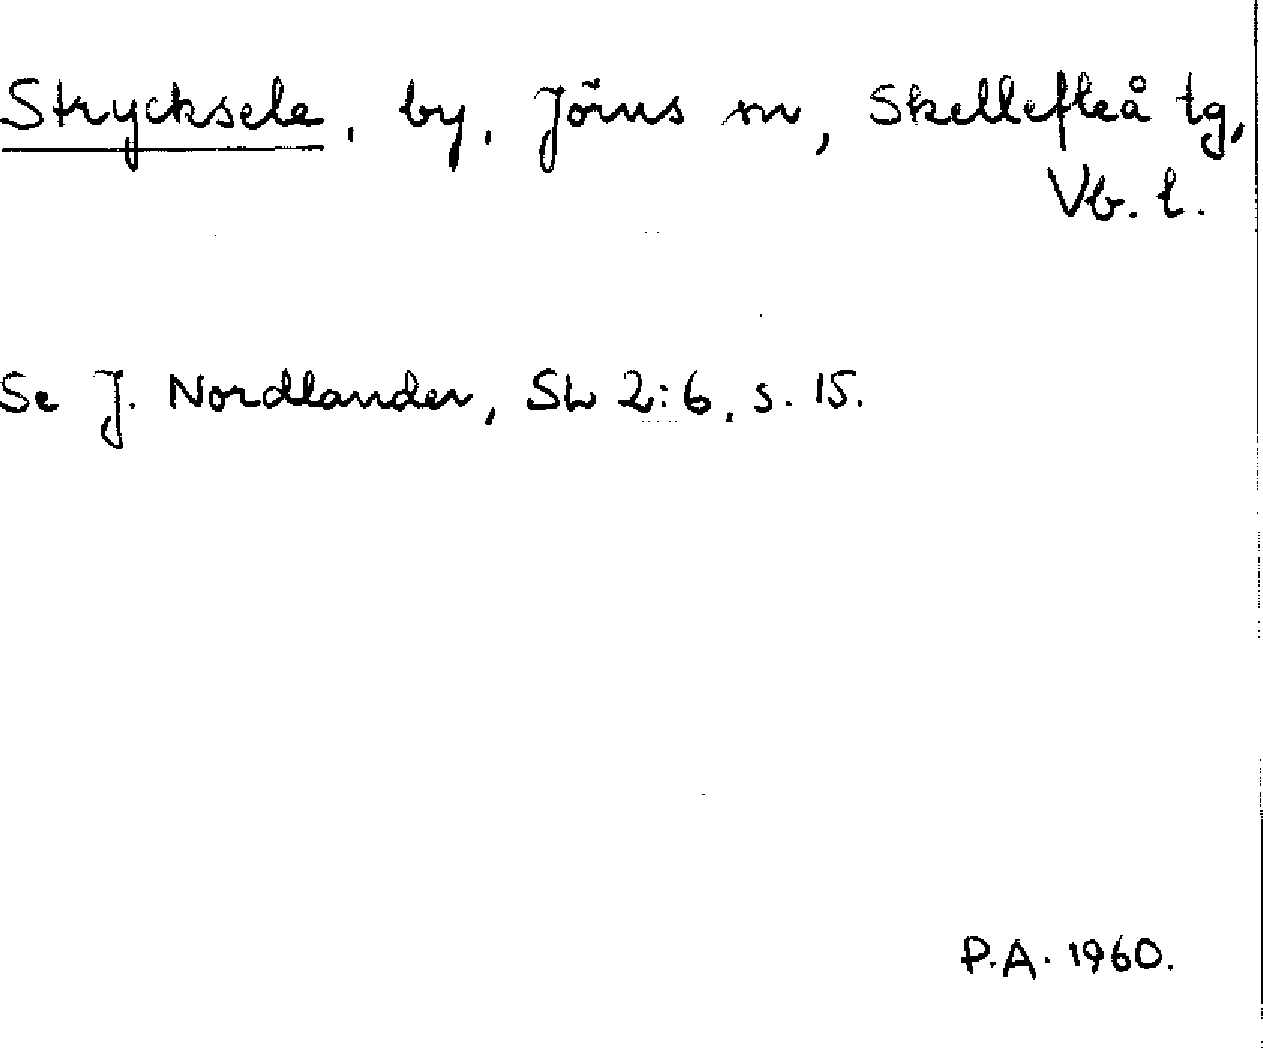 Strycksele, by, Jörns sn, Skellefteå tg,
Vb. l.
Se J. Nordlander, Sb 2:6, s. 15.
P.A. 1960.